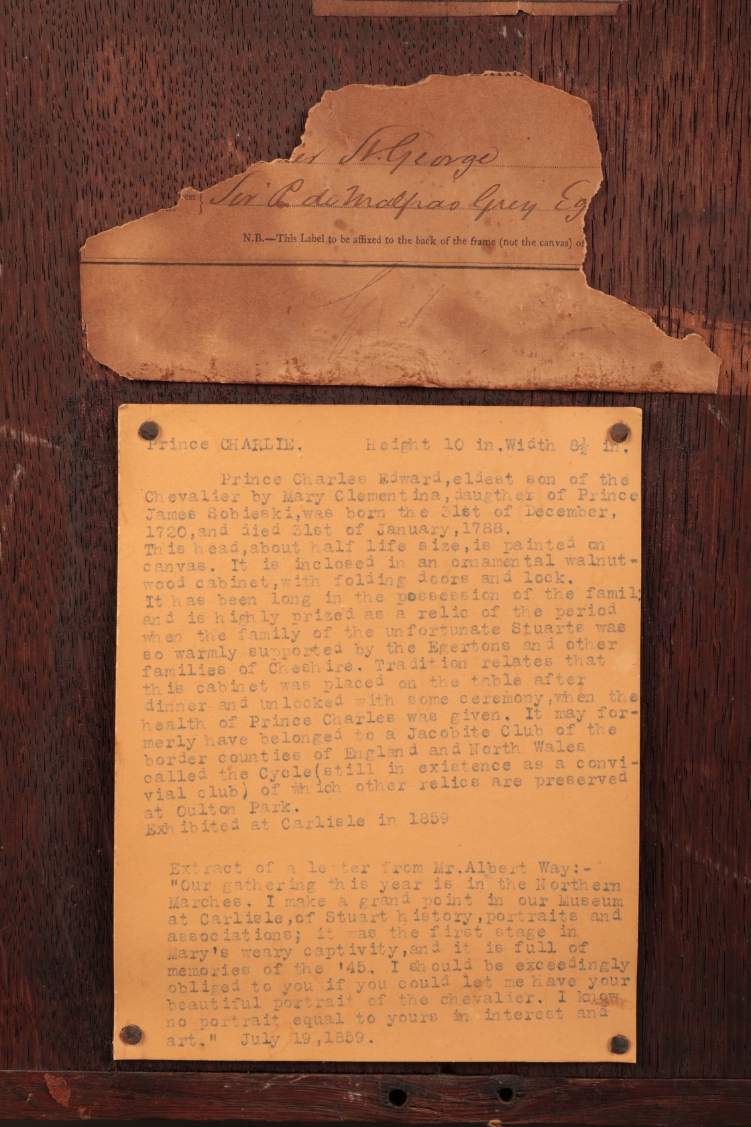 er St. George
Sir P. de Malpas Grey Eg
N.B.—This Label to be affixed to the back of the frame (not the canvas) of
Prince CHARLIE. Height 10 in.Width 8½ in.
Prince Charles Edward,eldest son of the
Chevalier by Mary Clementina,daugther of Prince
James Sobieski,was born the 31st of December,
1720,and died 31st of January,1788.
This head,about half life size,is painted on
canvas. It is inclosed in an ornamental walnut-
wood cabinet,with folding doors and lock.
It has been long in the possession of the family
and is highly prized as a relic of the period
when the family of the unfortunate Stuarts was
so warmly supported by the Egertons and other
families of Cheshire. Tradition relates that
this cabinet was placed on the table after
dinner and unlocked with some ceremony,when the
health of Prince Charles was given. It may for-
merly have belonged to a Jacobite Club of the
border counties of England and North Wales
called the Cycle(still in existence as a convi-
vial club) of which other relics are preserved
at Oulton Park.
Exhibited at Carlisle in 1859
Extract of a letter from Mr.Albert Way:-
"Our gathering this year is in the Northern
Marches. I make a grand point in our Museum
at Carlisle,of Stuart history,portraits and
associations; it was the first stage in
Mary's weary captivity,and it is full of
memories of the '45. I should be exceedingly
obliged to you if you could let me have your
beautiful portrait of the chevalier. I know
no portrait equal to yours in interest and
art." July 19,1859.